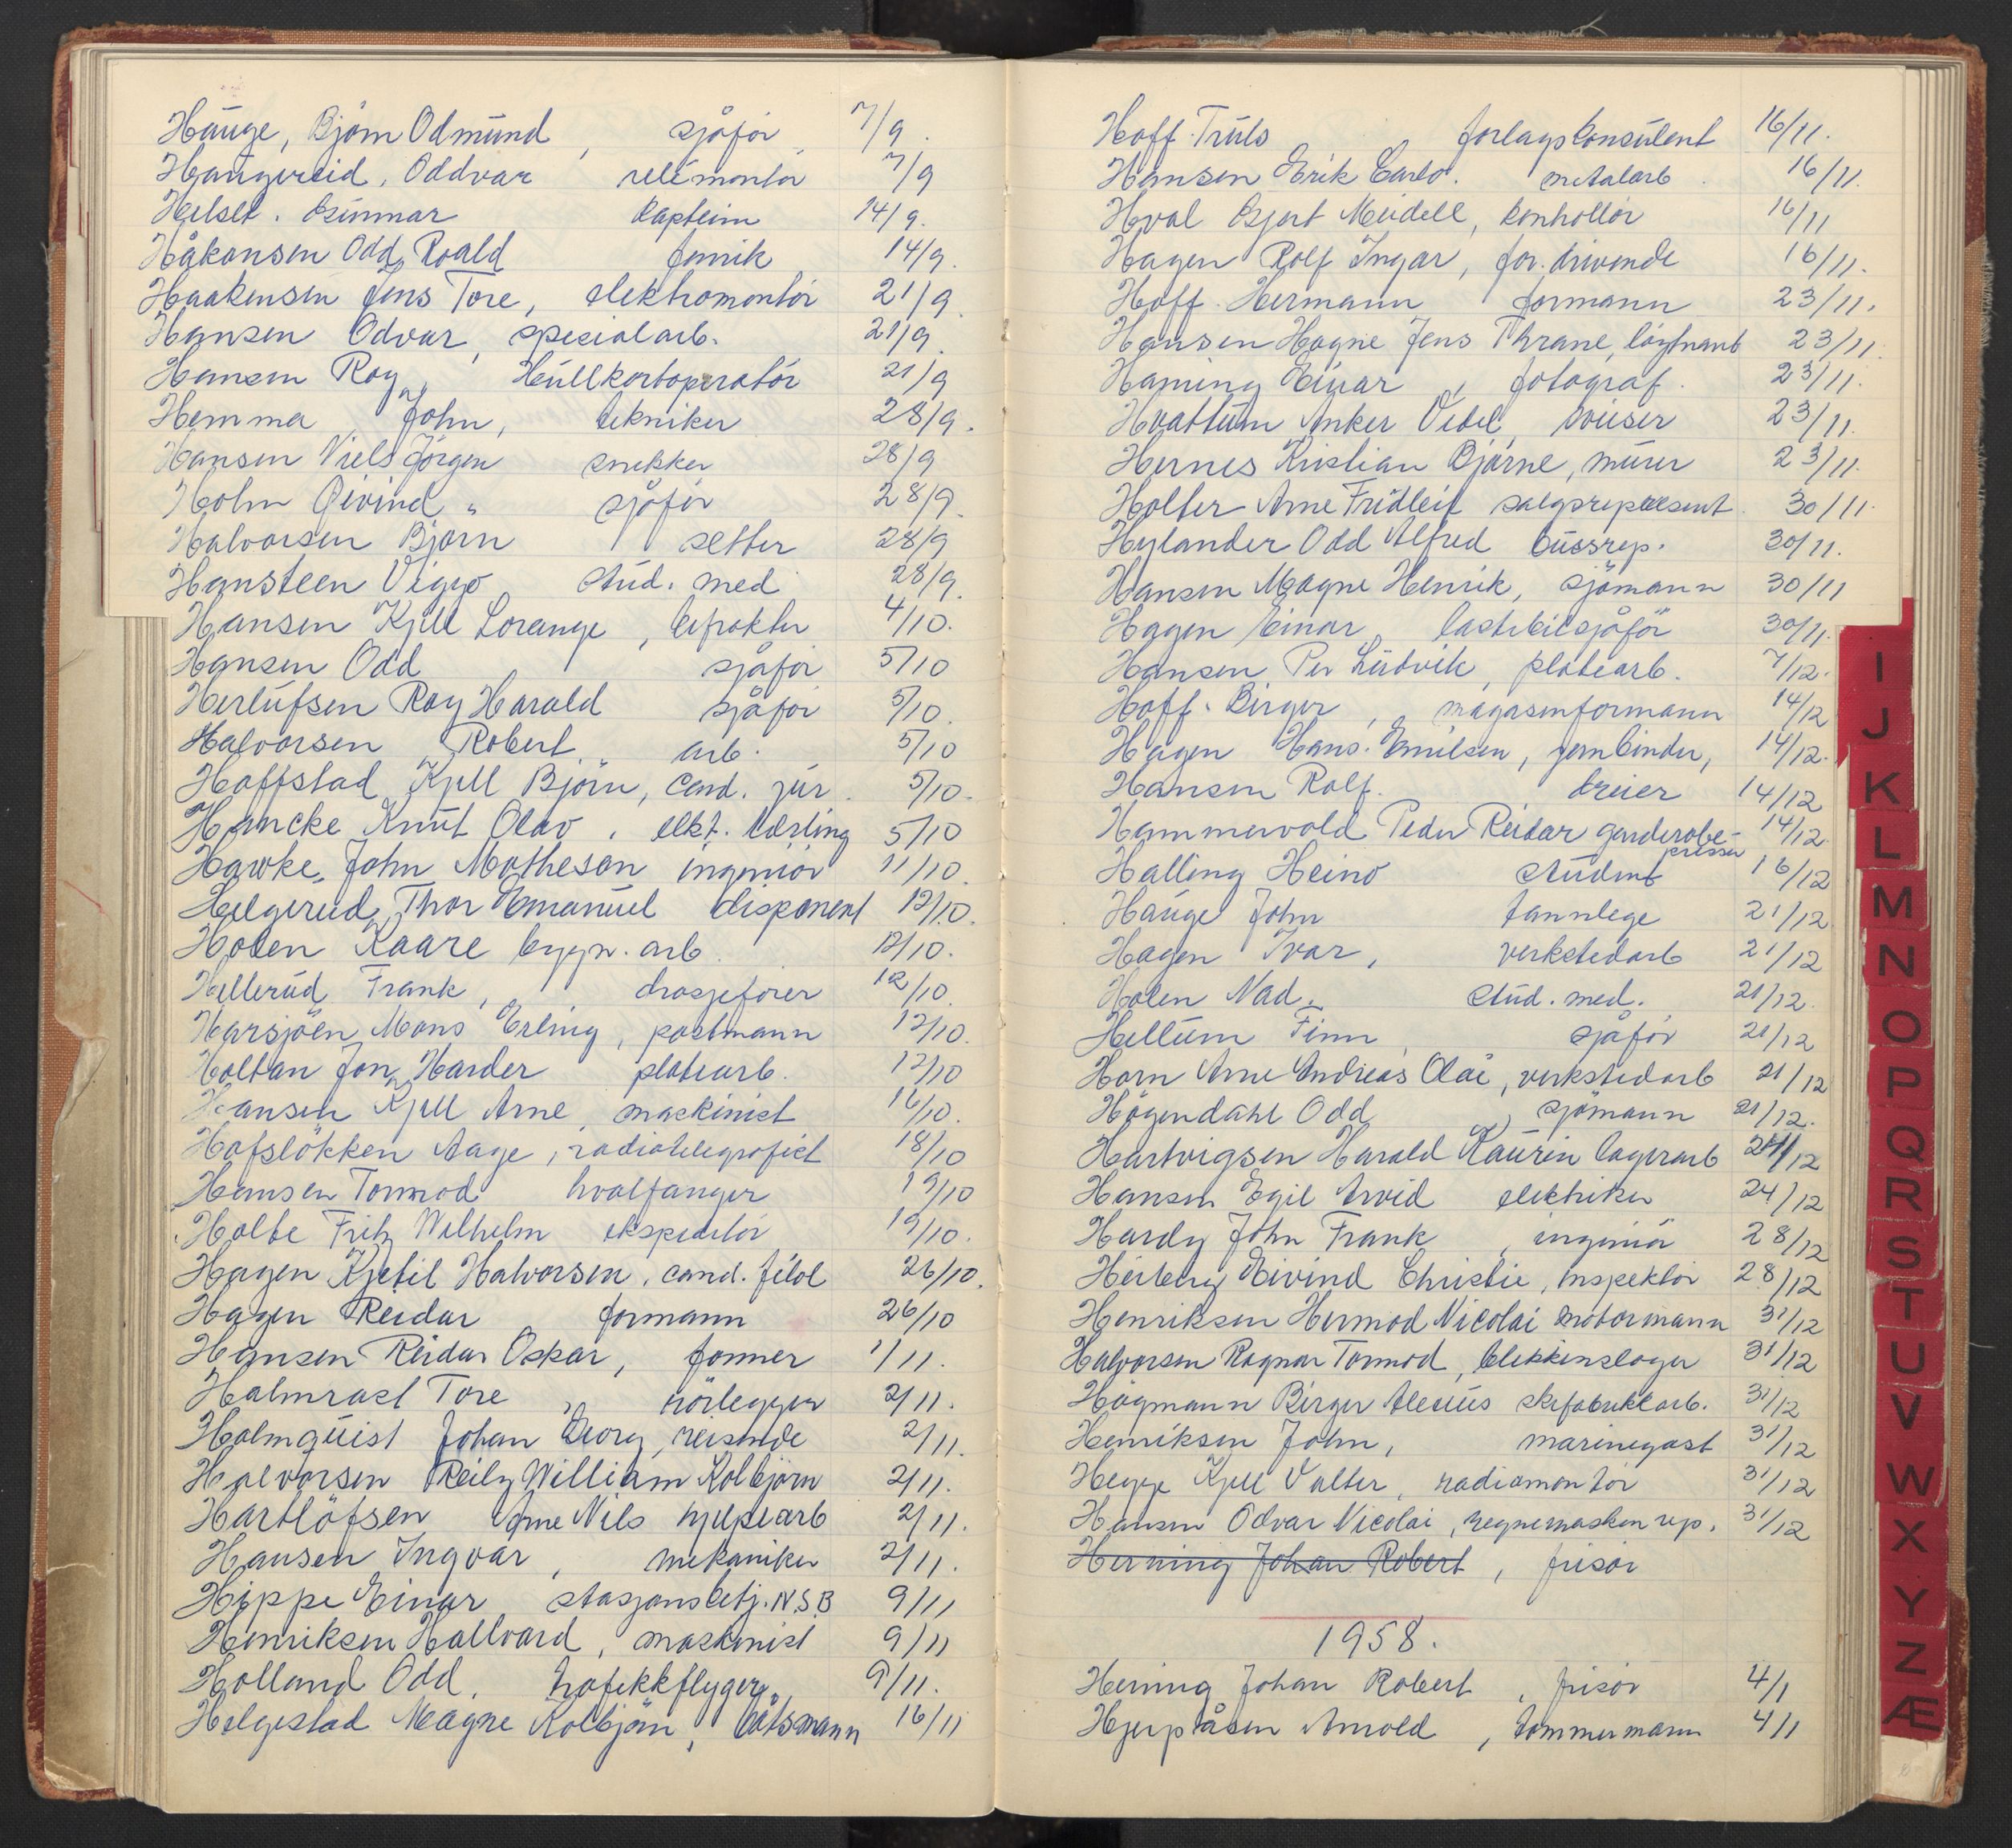 Hauge, Bjørn Odmund, sjåför, 7/9.
Haugereid, Oddvar relémontör 7/9
Helset. Gunnar kaptein 14/9.
Håkonsen Odd Roald fenrik 14/9.
Haakensen Jens Tore, elektromontör 21/9
Hansen Odvar, spesialarb. 21/9.
Hansen Roy, Hullkortoperatör 21/9
Hemma, John, tekniker 28/9.
Hansen Niels Jörgen snekker 28/9
Holm Öivind, sjåför 28/9.
Halvorsen Bjørn setter 28/9
Hansteen Viggo stud. med 28/9.
Hansen Kjell Lorange, befrakter 4/10.
Hansen Odd sjåför 5/10
Herlufsen Roy Harald sjåför 5/10.
Halvorsen Robert, arb. 5/10
Hoffstad Kjell Björn, cand. jur. 5/10.
Hancke Knut Olav, elkt. lærling 5/10
Hawke, John Matheson ingeniör 11/10.
Helgerud, Thor Emanuel disponent 12/10.
Holen Kaare bygn. arb. 12/10.
Hellerud Frank, drosjefører 12/10.
Harsjöen Mons Erling, postmann 12/10.
Holtan Jon Harder platearb. 12/10
Hansen Kjell Arne, maskinist 16/10.
Hofslökken Aage, radiotelegrafist 18/10
Hansen Tormod hvalfanger 19/10
Holbe Fritz Wilhelm ekspeditör 19/10.
Hagen Kjetil Halvorsen, cand. filol 26/10.
Hagen Reidar formann 26/10
Hansen Reidar Oskar, former 1/11.
Halmrast Tore, rörlegger 2/11.
Holmquist Johan Georg, reisende 2/11.
Halvorsen Reily William Kolbjörn 2/11.
Hartlöfsen Arne Nils hjelpearb 2/11.
Hansen Ingvar, mekaniker 2/11.
Hippe Einar stasjonsbetj. N.S.B 9/11
Henriksen Hallvard, maskinist 9/11
Holland Odd, trafikkflyger, 9/11.
Helgestad Magne Kolbjörn, båtsmann 16/11
Hoff. Truls forlagskonsulent 16/11.
Hansen Erik Carlo. metalarb. 16/11.
Hval Gjert Meidell, kontrollör 16/11
Hagen Rolf Ingar, for. drivende 16/11.
Hoff. Hermann formann 23/11.
Hansen Hagne Jens Thrane, löytnant 23/11.
Haning Einar, fotograf. 23/11.
Hvattum Anker Vedel, sviser 23/11.
Hernes Kristian Bjarne, murer 23/11.
Holter Arne Fridleif salgsrepresent. 30/11.
Hylander Odd Alfred bussrep. 30/11.
Hansen Magne Henrik, sjömann 30/11
Hagen Einar, lastebilsjåför 30/11.
Hansen Per Ludvik, platearb. 7/12.
Hoff. Birger, magasinformann 14/12
Hagen Hans. Emilsen, jernbinder, 14/12.
Hansen Rolf. dreier 14/12
Hammervold Peder Reidar garderobe- 14/12.
presser
Halling Heino student 16/12
Hauge John tannlege 21/12
Hagen Ivar, verkstedarb 21/12
Holen Nad. stud. med. 21/12.
Hellum Finn, sjåför 21/12
Horn Arne Andreas Olai, verkstedarb 21/12
Högendahl Odd, sjömann 21/12.
Hartvigsen Harald Kaurin lagerarb 24/12
Hansen Egil Arvid elektriker 24/12
Hardy John Frank, ingeniör 28/12
Heiberg Eivind Christie, inspektör 28/12
Henriksen Hermod Nicolai motormann 31/12
Halvorsen Ragnar Tormod, blikkenslager 31/12
Högmann Birger Alexius skifabrikkarb. 31/12
Henriksen John, marinegast 31/12
Hegge Kjell Valter, radiomontör 31/12
Hansen Odvar Nicolai, regnemaskin rep. 31/12
Herning Johan Robert, frisör
1958.
Herning Johan Robert, frisör 4/1
Hjerpåsen Arnold, tömmermann 4/1
I
J
K
L
M
N
O
P
Q
R
S
T
U
V
W
X
Y
Z
Æ